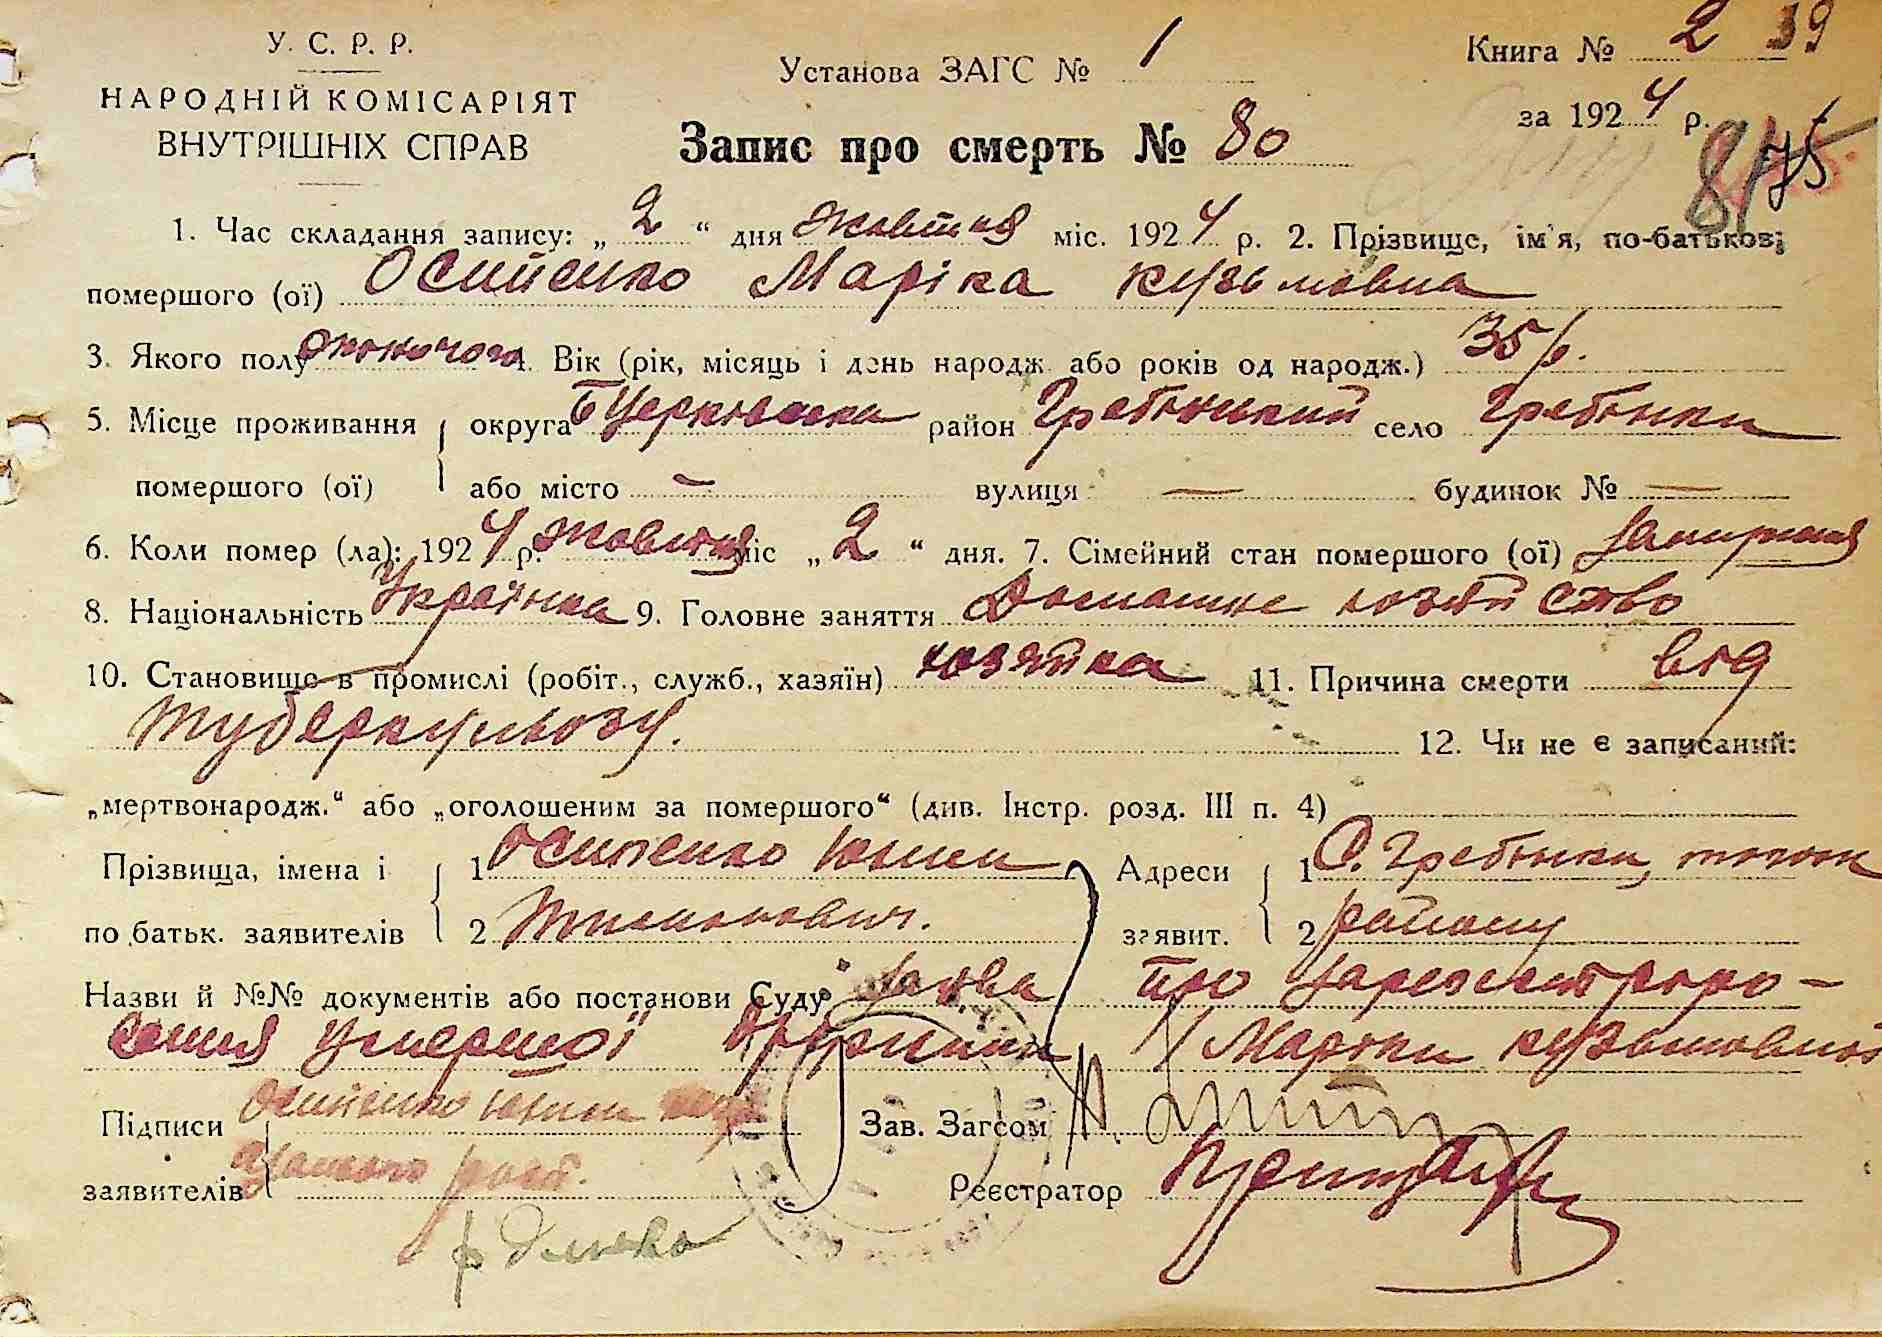 У. С. Р. Р.
НАРОДНІЙ КОМІСАРІЯТ
ВНУТРІШНІХ СПРАВ
Установа ЗАГС № 1
Книга № 2 39
за 1924 р.
Запис про смерть № 80
1. Час складання запису: „ 2 “ дня жовтня міс. 1924 р. 2. Прізвище, ім'я, по-батькові
помершого (ої) Осипенко Маріка кузьмовна
3. Якого полу жіночого 4. Вік (рік, місяць і день народж. або років од народж.) 35 р.
5. Місце проживання округа Бцерківська район Гребінький село Гребінки
помершого (ої) або місто — вулиця — будинок № —
6. Коли помер (ла): 1924 р. жовтня міс „ 2 “ дня. 7. Сімейний стан помершого (ої)
8. Національність Українка 9. Головне заняття Домашнє хозяйство
10. Становище в промислі (робіт., служб., хазяїн) хозяйка 11. Причина смерти від
туберкульозу. 12. Чи не є записаний:
„мертвонародж.“ або „оголошеним за помершого“ (див. Інстр. розд. III п. 4)
Прізвища, імена і 1 Осипенко Юхим Адреси 1 С. Гребінки, того ж
по батьк. заявителів 2 Тихонович. заявит. 2 району
Назви й №№ документів або постанови Суду заява про зарегистриро-
вання умершої дружини Маріки кузьмовної
Підписи Осипенко Юхим Зав. Загсом
заявителів Реєстратор